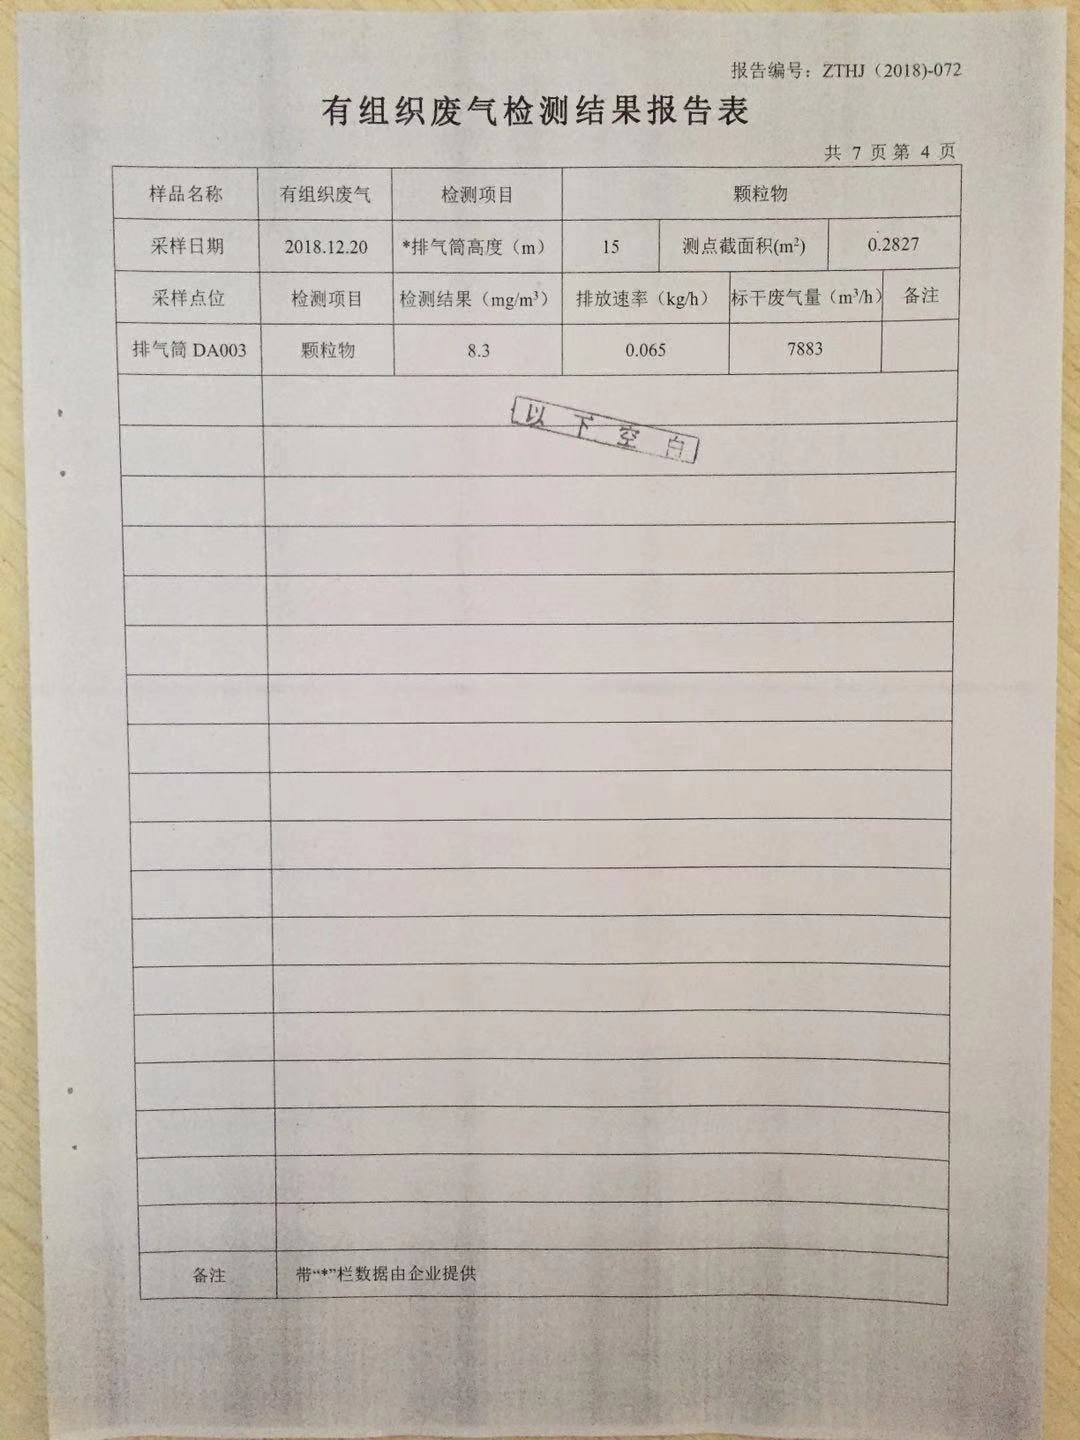 报告编号：ZTHJ（2018)-072
有组织废气检测结果报告表
共 7 页 第 4 页
样品名称 有组织废气 检测项目 颗粒物
采样日期 2018.12.20 *排气筒高度（m） 15 测点截面积(m²) 0.2827
采样点位 检测项目 检测结果（mg/m³） 排放速率（kg/h） 标干废气量（m³/h） 备注
排气筒 DA003 颗粒物 8.3 0.065 7883
以下空白
备注 带“*”栏数据由企业提供